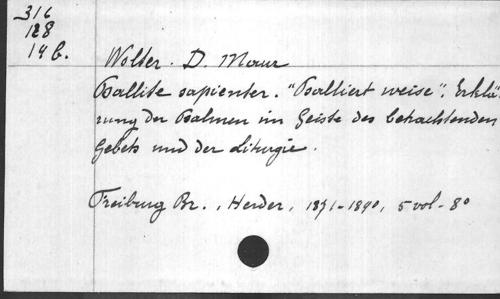 316
128
14 b.
Wolter. D. Maur
Psallite sapienter. "Psalliert weise". Erklä-
rung der Psalmen im Geiste des betrachtenden
Gebets und der Liturgie.
Freiburg Br., Herder, 1871-1890, 5 vol - 8°